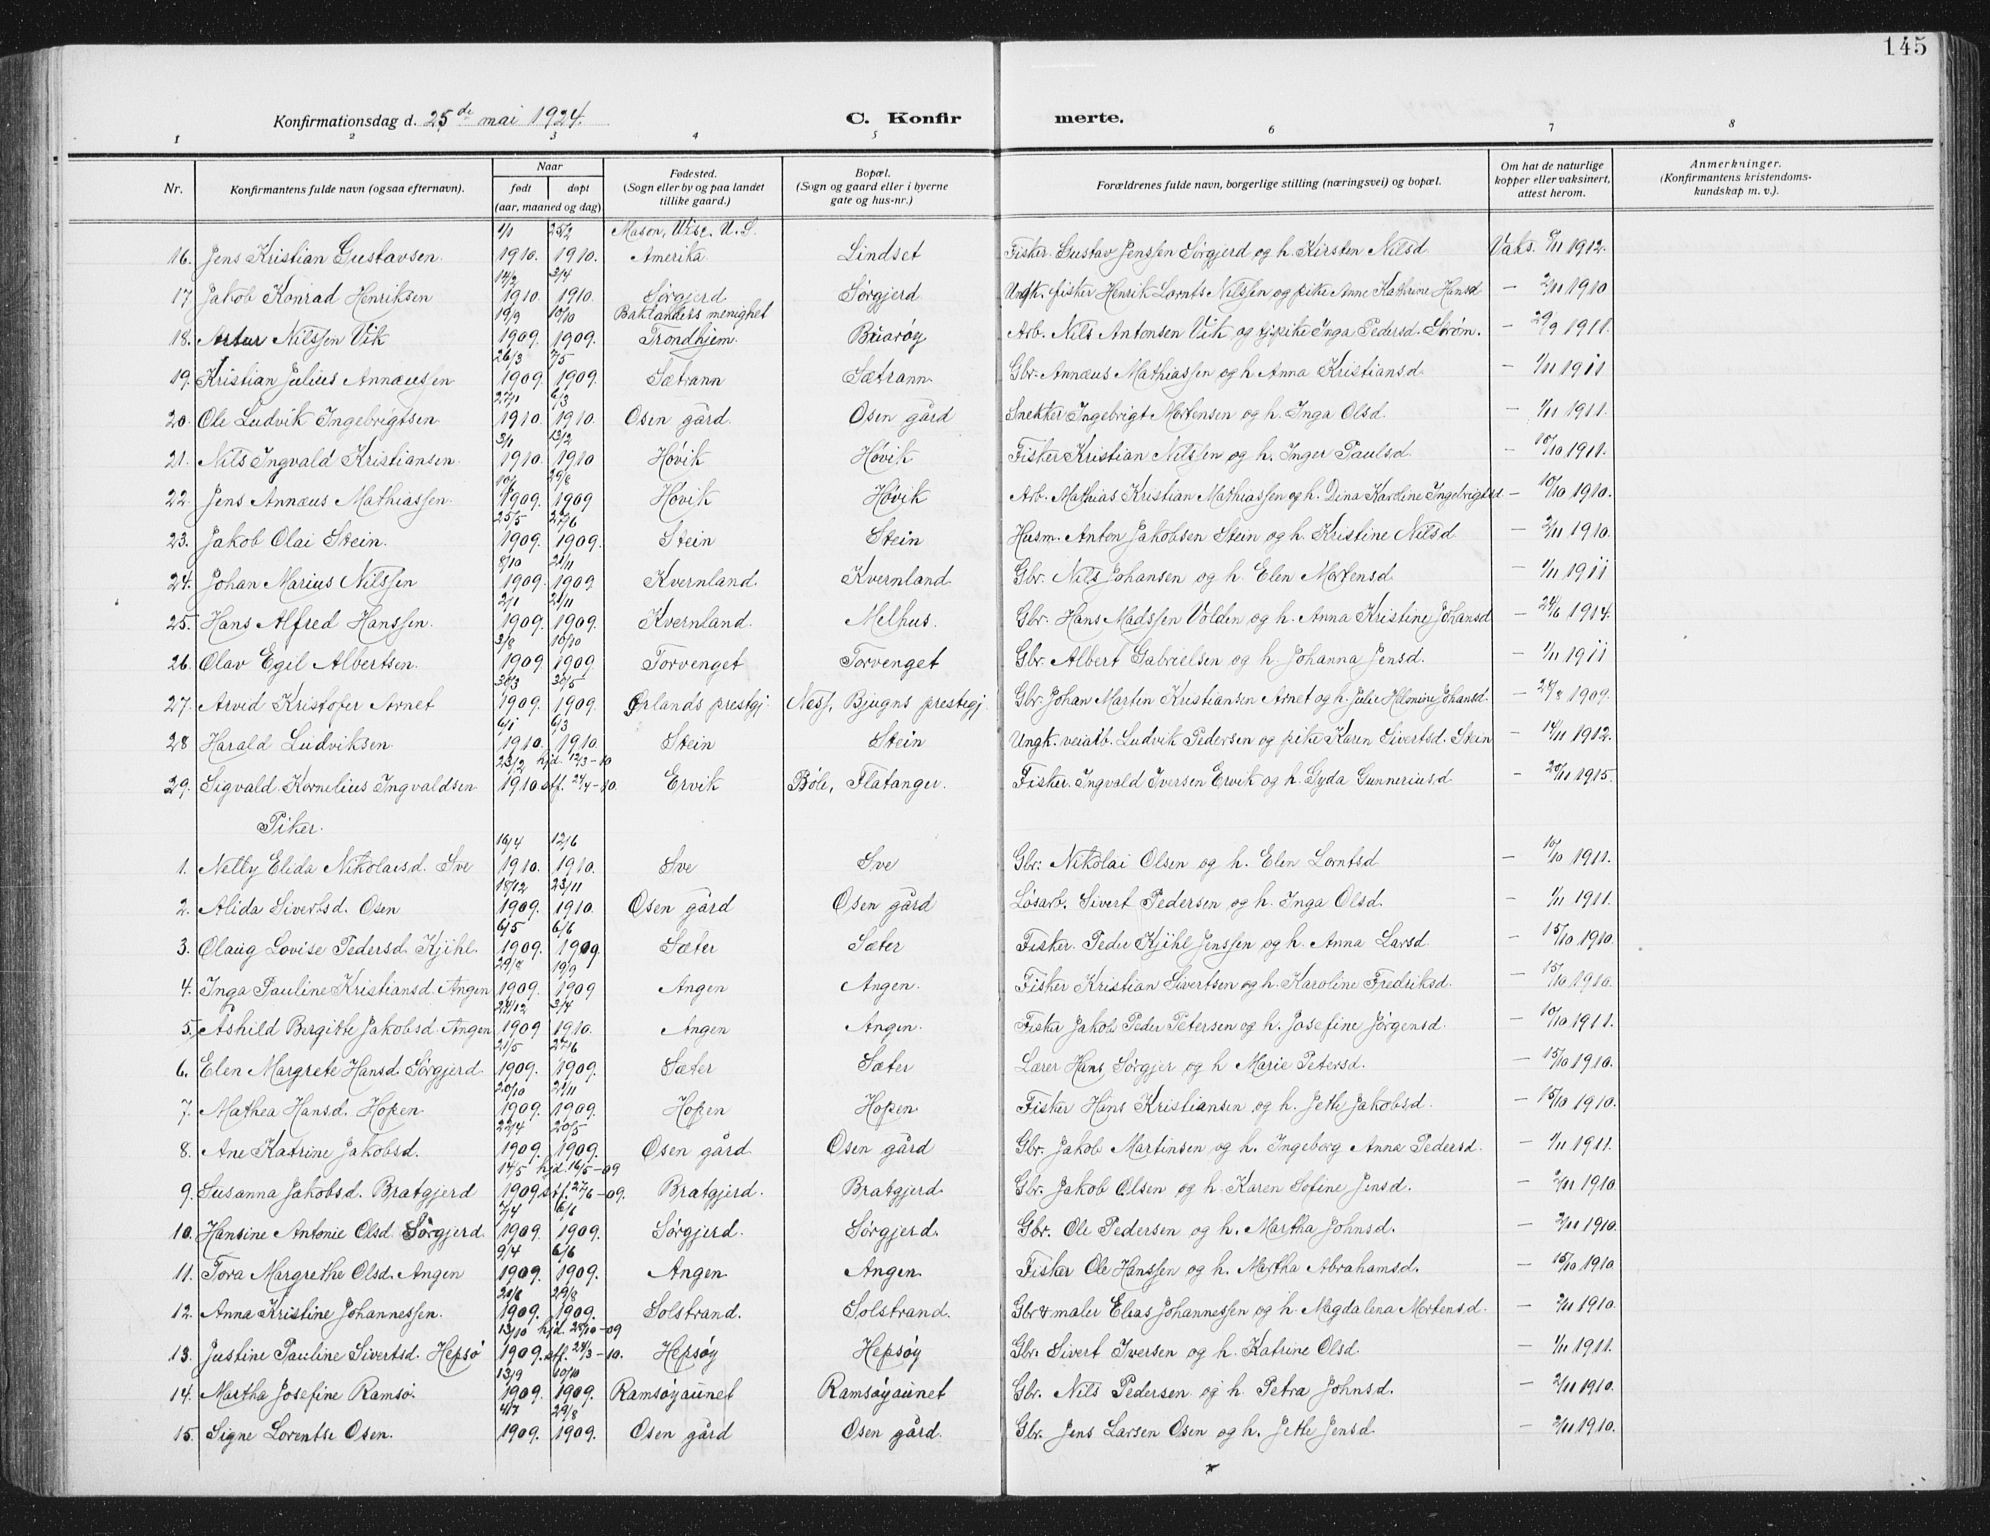 145
Konfirmationsdag d. 25de mai 1924.
C. Konfirmerte.
1 2 3 4 5 6 7 8
Nr. Konfirmantens fulde navn (ogsaa efternavn). Naar født døpt (aar, maaned og dag) Fødested. (Sogn eller by og paa landet tillike gaard.) Bopæl. (Sogn og gaard eller i byerne gate og hus-nr.) Forældrenes fulde navn, borgerlige stilling (næringsvei) og bopæl. Om hat de naturlige kopper eller vaksinert, attest herom. Anmerkninger. (Konfirmantens kristendomskundskap m. v.).
1/1 25/2 Mason, Wisc. U. S.
16. Jens Kristian Gustavsen. 1910. 1910. Amerika Lindset Fisker Gustav Jenssen Sørgjerd og h. Kirsten Nilsd. Vaks. 1912.
14/2 3/4
17 Jakob Konrad Henriksen 1910 1910 Sørgjerd Sørgjerd Ungk. fisker Henrik Lornts Nilssen og pike Anne Kathrine Hansd — 2/11 1910
19/9 10/10 Baklanders menighet
18. Artur Nilssen Vik 1909. 1909. Trondhjem. Buarøy Arb. Nils Antonsen Vik og pike Inga Pedersd. Strøm. — 29/9 1911.
26/3 7/5
19. Kristian Julius Annæussen 1909. 1909. Sætrann Sætrann Gbr. Annæus Mathiassen og h. Anna Kristiansd — 1/11 1911
27/1 6/3
20. Ole Ludvik Ingebrigtsen 1910 1910. Osen gård. Osen gård Snekker Ingebrigt Mortensen og h. Inga Olsd. — 1/11 1911.
3/1 13/2
21. Nils Ingvald Kristiansen. 1910. 1910 Høvik Høvik Fisker Kristian Nilssen og h. Inger Paulsd. — 10/10 1911.
29/8
22. Jens Annæus Mathiassen. 1909. 1909 Høvik Høvik Arb. Mathias Kristian Mathiassen og h. Dina Karoline Ingebrigtsd — 10/10 1910.
25/5 27/6
23. Jakob Olai Stein. 1909. 1909. Stein Stein Husm. Anton Jakobsen Stein og h. Kristine Nilsd — 2/11 1910.
8/10 21/11
24. Johan Marius Nilssen 1909. 1909. Kvernland. Kvernland. Gbr. Nils Johansen og h. Elen Mortensd. — 1/11 1911
2/1 21/11
25. Hans Alfred Hanssen. 1909. 1909. Kvernland. Melhus. Gbr. Hans Madssen Volden og h. Anna Kristine Johansd — 24/6 1914.
3/8 10/10
26. Olav Egil Albertsen. 1909. 1909. Torvenget Torvenget Gbr. Albert Gabrielsen og h. Johanna Jensd. — 1/11 1911
30/3 30/5
27. Arvid Kristofer Arnet 1909. 1909. Ørlands prestgj. Ness, Bjugns prestegj. Gbr. Johan Martin Kristiansen Arnet og h. Julie Helmine Johansd. — 24/8 1909.
6/1 6/3
28 Harald Ludviksen 1910. 1910. Stein Stein Ungk. veiarb. Ludvik Pedersen og pike Karen Sivertsd. Stein — 14/11 1912.
23/2 hjd. 12/3 - 10
29. Sigvald Kornelius Ingvaldsen 1910 stf. 24/4 - 10. Ervik Bøle, Flatanger. Fisker. Ingvald Iversen Ervik og h. Gyda Gunneriusd — 20/11 1915.
Piker.
16/4 12/6
1. Nelly Elida Nikolaisd. Sve 1910. 1910. Sve Sve Gbr: Nikolai Olsen og h. Elen Lorntsd — 10/10 1911.
18/12 23/11
2. Alida Sivertsd. Osen 1909. 1910. Osen gård Osen gård Løsarb. Sivert Pedersen og h. Inga Olsd. — 1/11 1911.
6/5 6/6
3. Olaug Lovise Pedersd. Kjihl. 1909. 1909. Sæter Sæter Fisker. Peder Kjihl Jenssen og h. Anna Larsd. — 15/10 1910.
29/8 19/9
4. Inga Pauline Kristiansd. Angen 1909. 1909 Angen Angen. Fisker Kristian Sivertsen og h. Karoline Fredriksd. — 15/10 1910.
24/12 3/4
5. Åshild Birgitte Jakobsd. Angen 1909 1910. Angen Angen. Fisker Jakob Peder Petersen og h. Josefine Jørgensd. — 10/10 1911.
21/5 27/6
6. Elen Margrete Hansd. Sørgjerd. 1909. 1909. Sæter Sæter Lærer Hans Sørgjer og h. Marie Petersd. — 15/10 1910.
20/10 21/11
7. Mathea Hansd. Hopen 1909. 1909. Hopen Hopen Fisker Hans Kristiansen og h. Jette Jakobsd. — 15/10 1910.
22/4 20/5
8. Ane Katrine Jakobsd. 1909. 1909. Osen gård. Osen gård Gbr. Jakob Martinsen og h. Ingeborg Anna Pedersd. — 1/11 1911.
14/5 hjd. 16/5 - 09
9. Susanna Jakobsd. Bratgjerd 1909 stf. 27/6 - 09. Bratgjerd. Bratgjerd. Gbr. Jakob Olsen og h. Karen Sofine Jensd. — 2/11 1910
7/4 6/6
10. Hansine Antonie Olsd. Sørgjerd. 1909. 1909. Sørgjerd. Sørgjerd. Gbr. Ole Pedersen og h. Martha Johnsd. — 2/11 1910.
9/4 6/6
11. Tora Margrethe Olsd. Angen 1909. 1909. Angen Angen. Fisker Ole Hanssen og h. Martha Abrahamsd. — 15/10 1910
29/8
12. Anna Kristine Johannessen. 1909. 1909. Solstrand. Solstrand. Gbr & maler Elias Johannessen og h. Magdalena Mortensd. — 2/11 1910.
13/10 hjd. 28/10 - 09
13. Justine Pauline Sivertsd. Hepsø 1909. stf. 24/3 - 10. Hepsøy Hepsøy Gbr. Sivert Iversen og h. Katrine Olsd. — 1/11 1911.
13/9 10/10
14. Martha Josefine Ramsø. 1909. 1909. Ramsøyaunet Ramsøyaunet Gbr. Nils Pedersen og h. Petra Johnsd. — 2/11 1910.
4/7 29/8
15. Signe Lorentse Osen. 1909. 1909. Osen gård Osen gård. Gbr. Jens Larsen Osen og h. Jette Jensd. — 2/11 1910.